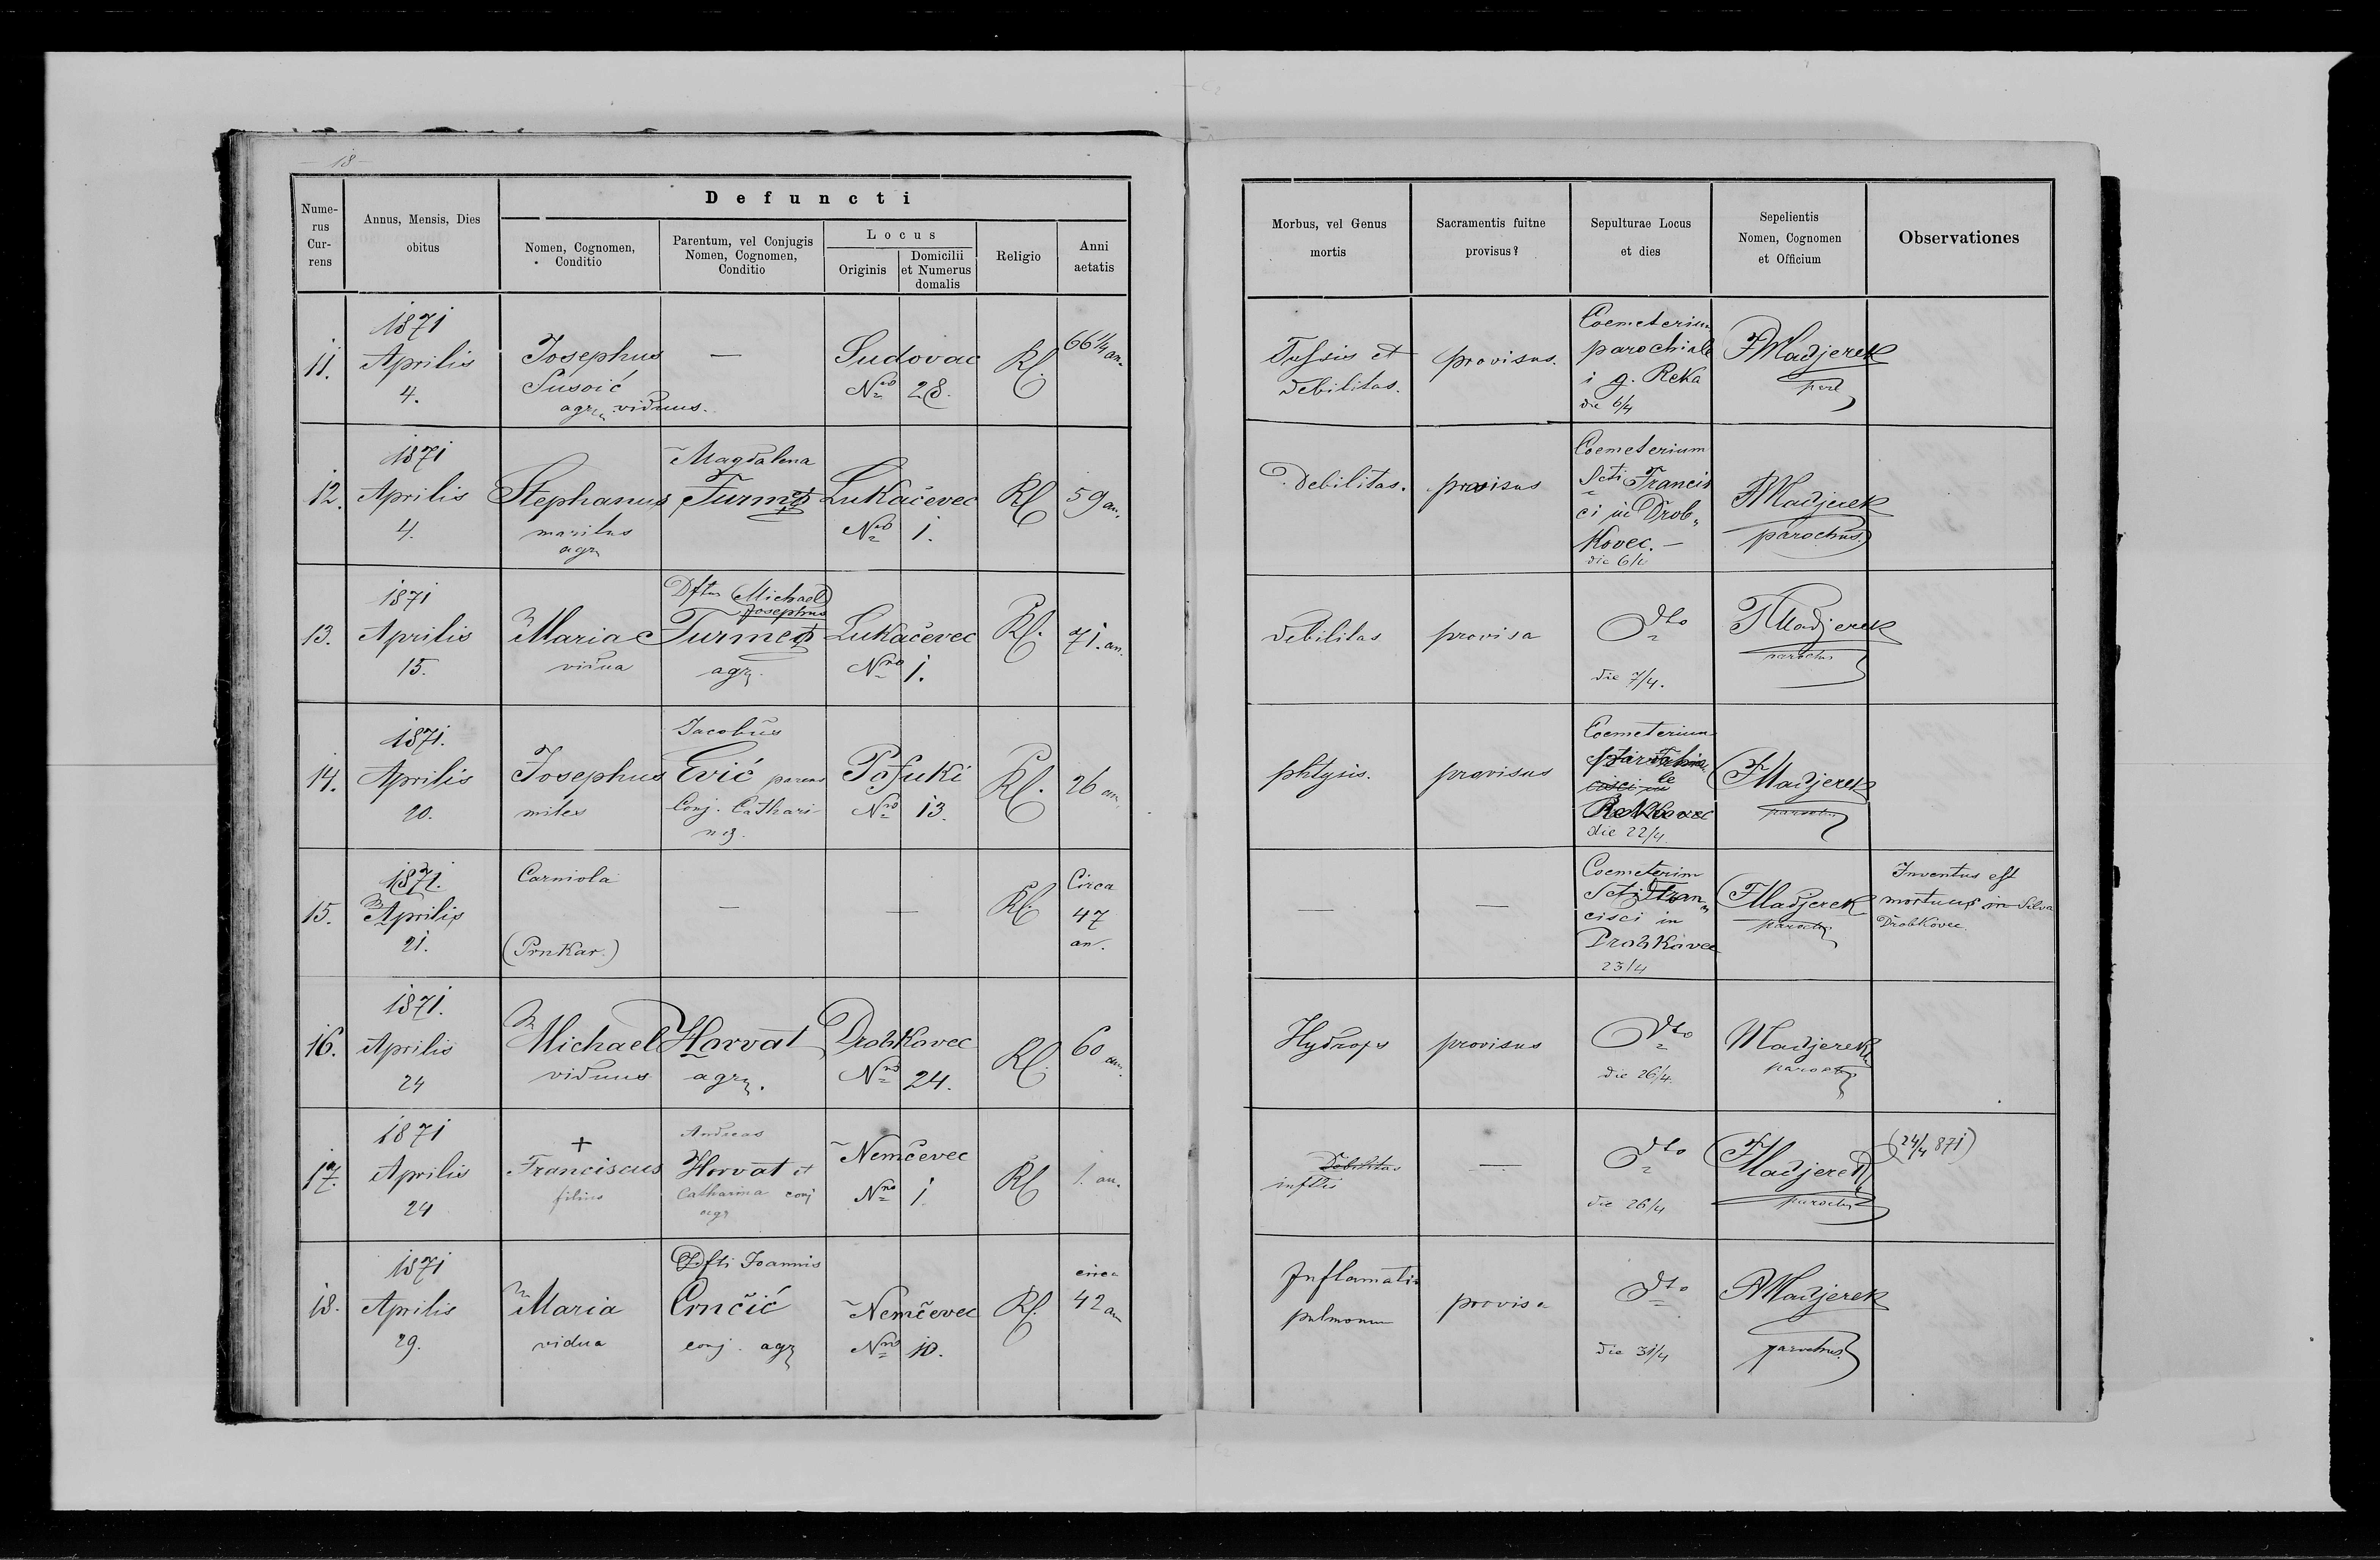 18
Defuncti
Nume-
rus
Cur-
rens
Annus, Mensis, Dies
obitus
Nomen, Cognomen,
Conditio
Parentum, vel Conjugis
Nomen, Cognomen,
Conditio
Locus
Originis
Domicilii
et Numerus
domalis
Religio
Anni
aetatis
Morbus, vel Genus
mortis
Sacramentis fuitne
provisus?
Sepulturae Locus
et dies
Sepelientis
Nomen, Cognomen
et Officium
Observationes
11.
1871
Aprilis
4.
Josephus
agr. viduus.
—
Ludovac
Nro 28.
RC.
66 1/4 an.
Tussis et
debilitas.
provisus.
Coemeterium
parochiale
i g. Reka
die 6/4
FMadjerek
12.
1871
Aprilis
4.
Stephanus
maritus
agr.
Magdalena
Lukačevec
Nro 1.
RC
59 an.
Debilitas.
provisus
Coemeterium
Scti Francis
ci in Drob„
kovec. —
die 6/4
FMadjerek
parochus.
13.
1871
Aprilis
15.
Maria
vidua
Dftus Michael
Josephus
agr.
Lukačevec
Nro 1.
RC.
71. an.
debilitas
provisa
Dto
die 7/4.
FMadjerek
parochus
14.
1871.
Aprilis
20.
Josephus
miles
Jacobus
Ević parens
Conj. Cathari-
Nro 13.
RC.
26 an.
phtysis.
provisus
Coemeterium
die 22/4.
FMadjerek
parochus
15.
1871.
Aprilis
21.
Carniola
(Prnkar.)
—
—
RC.
Circa
47
an.
—
—
Coemeterim
Scti Fran„
cisci in
Drobkovec
23/4
FMadjerek
parochus
Inventus est
mortuus in silva
Drobkovec.
16.
1871.
Aprilis
24
Michael
viduus
Horvat
agr.
Drobkovec
Nro 24.
RC.
60 an.
Hydrops
provisus
Dto
die 26/4.
Madjerek
parochus
17.
1871
Aprilis
24
+
Franciscus
filius
Andreas
Horvat et
Catharina conj
agr
Nemčevec
Nro 1.
RC
1. an.
Debilitas
—
Dto
die 26/4
FMadjerek
parochus
(24/4 871)
18.
1871
Aprilis
29.
Maria
vidua
Dfti Joannis
Crnčić
conj. agr
Nemčevec
Nro 10.
RC.
circa
42 an
Inflamatio
pulmonum
provisa
Dto
die 31/4
FMadjerek
parochus.